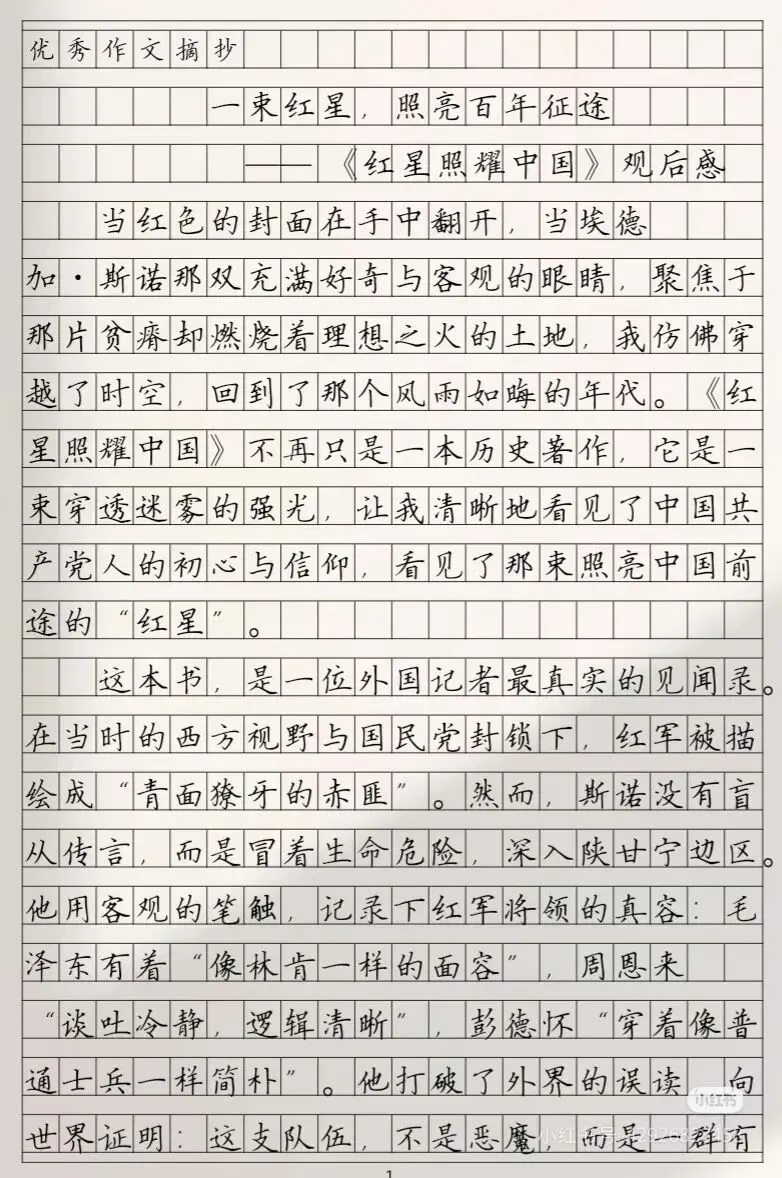 优秀作文摘抄
一束红星，照亮百年征途
——《红星照耀中国》观后感
当红色的封面在手中翻开，当埃德
加·斯诺那双充满好奇与客观的眼睛，聚焦于
那片贫瘠却燃烧着理想之火的土地，我仿佛穿
越了时空，回到了那个风雨如晦的年代。《红
星照耀中国》不再只是一本历史著作，它是一
束穿透迷雾的强光，让我清晰地看见了中国共
产党人的初心与信仰，看见了那束照亮中国前
途的“红星”。
这本书，是一位外国记者最真实的见闻录。
在当时的西方视野与国民党封锁下，红军被描
绘成“青面獠牙的赤匪”。然而，斯诺没有盲
从传言，而是冒着生命危险，深入陕甘宁边区。
他用客观的笔触，记录下红军将领的真容：毛
泽东有着“像林肯一样的面容”，周恩来
“谈吐冷静，逻辑清晰”，彭德怀“穿着像普
通士兵一样简朴”。他打破了外界的误读 向
世界证明：这支队伍，不是恶魔，而是一群有
小红书
小红书号
1